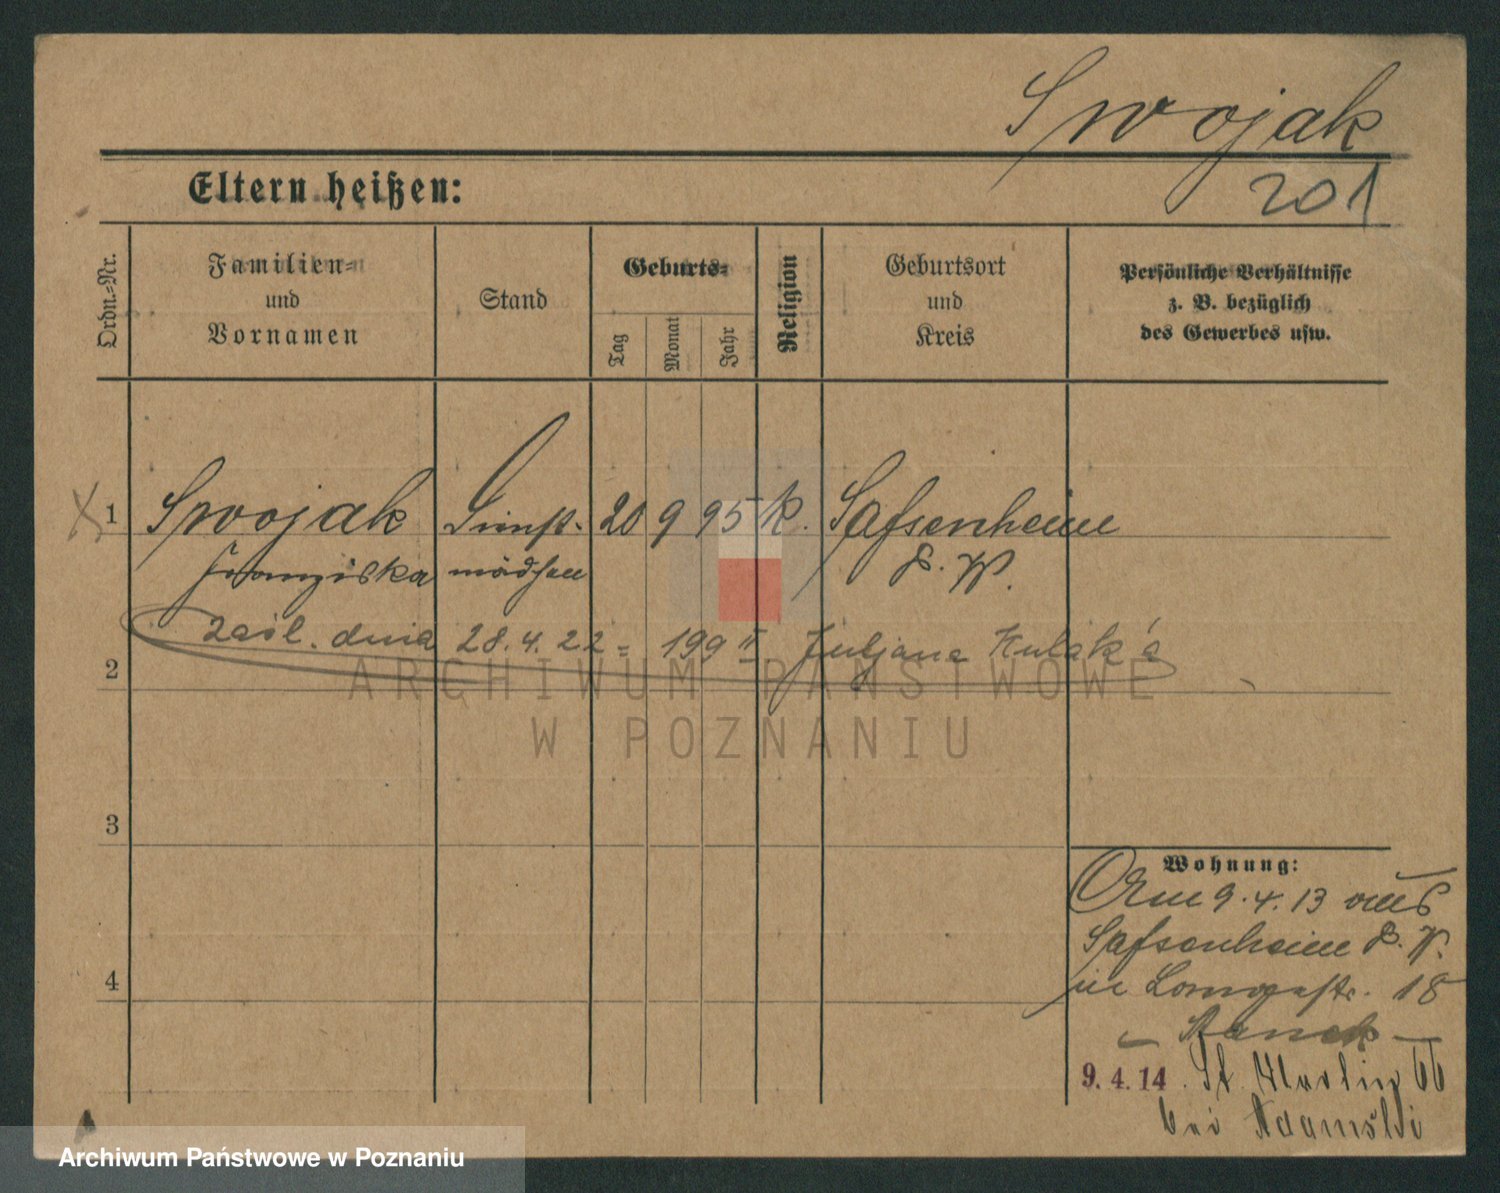 Swojak
201
Eltern heißen:
Ordn.-Nr.
Familien-
und
Vornamen
Stand
Geburts-
Tag
Monat
Jahr
Religion
Geburtsort
und
Kreis
Persönliche Verhältnisse
z. B. bezüglich
des Gewerbes usw.
1 Swojak Dienst- 20 9 95 k. Sassenheim
Franziska mädchen P. W.
zaśl. dnia 28.4.22 = 199 II Juljana
2
ARCHIWUM PAŃSTWOWE
W POZNANIU
3
Wohnung:
Am 9.4.13 aus
Sassenheim P. W.
in 18
4
9.4.14. St. Martin 66
bei Adamski
Archiwum Państwowe w Poznaniu